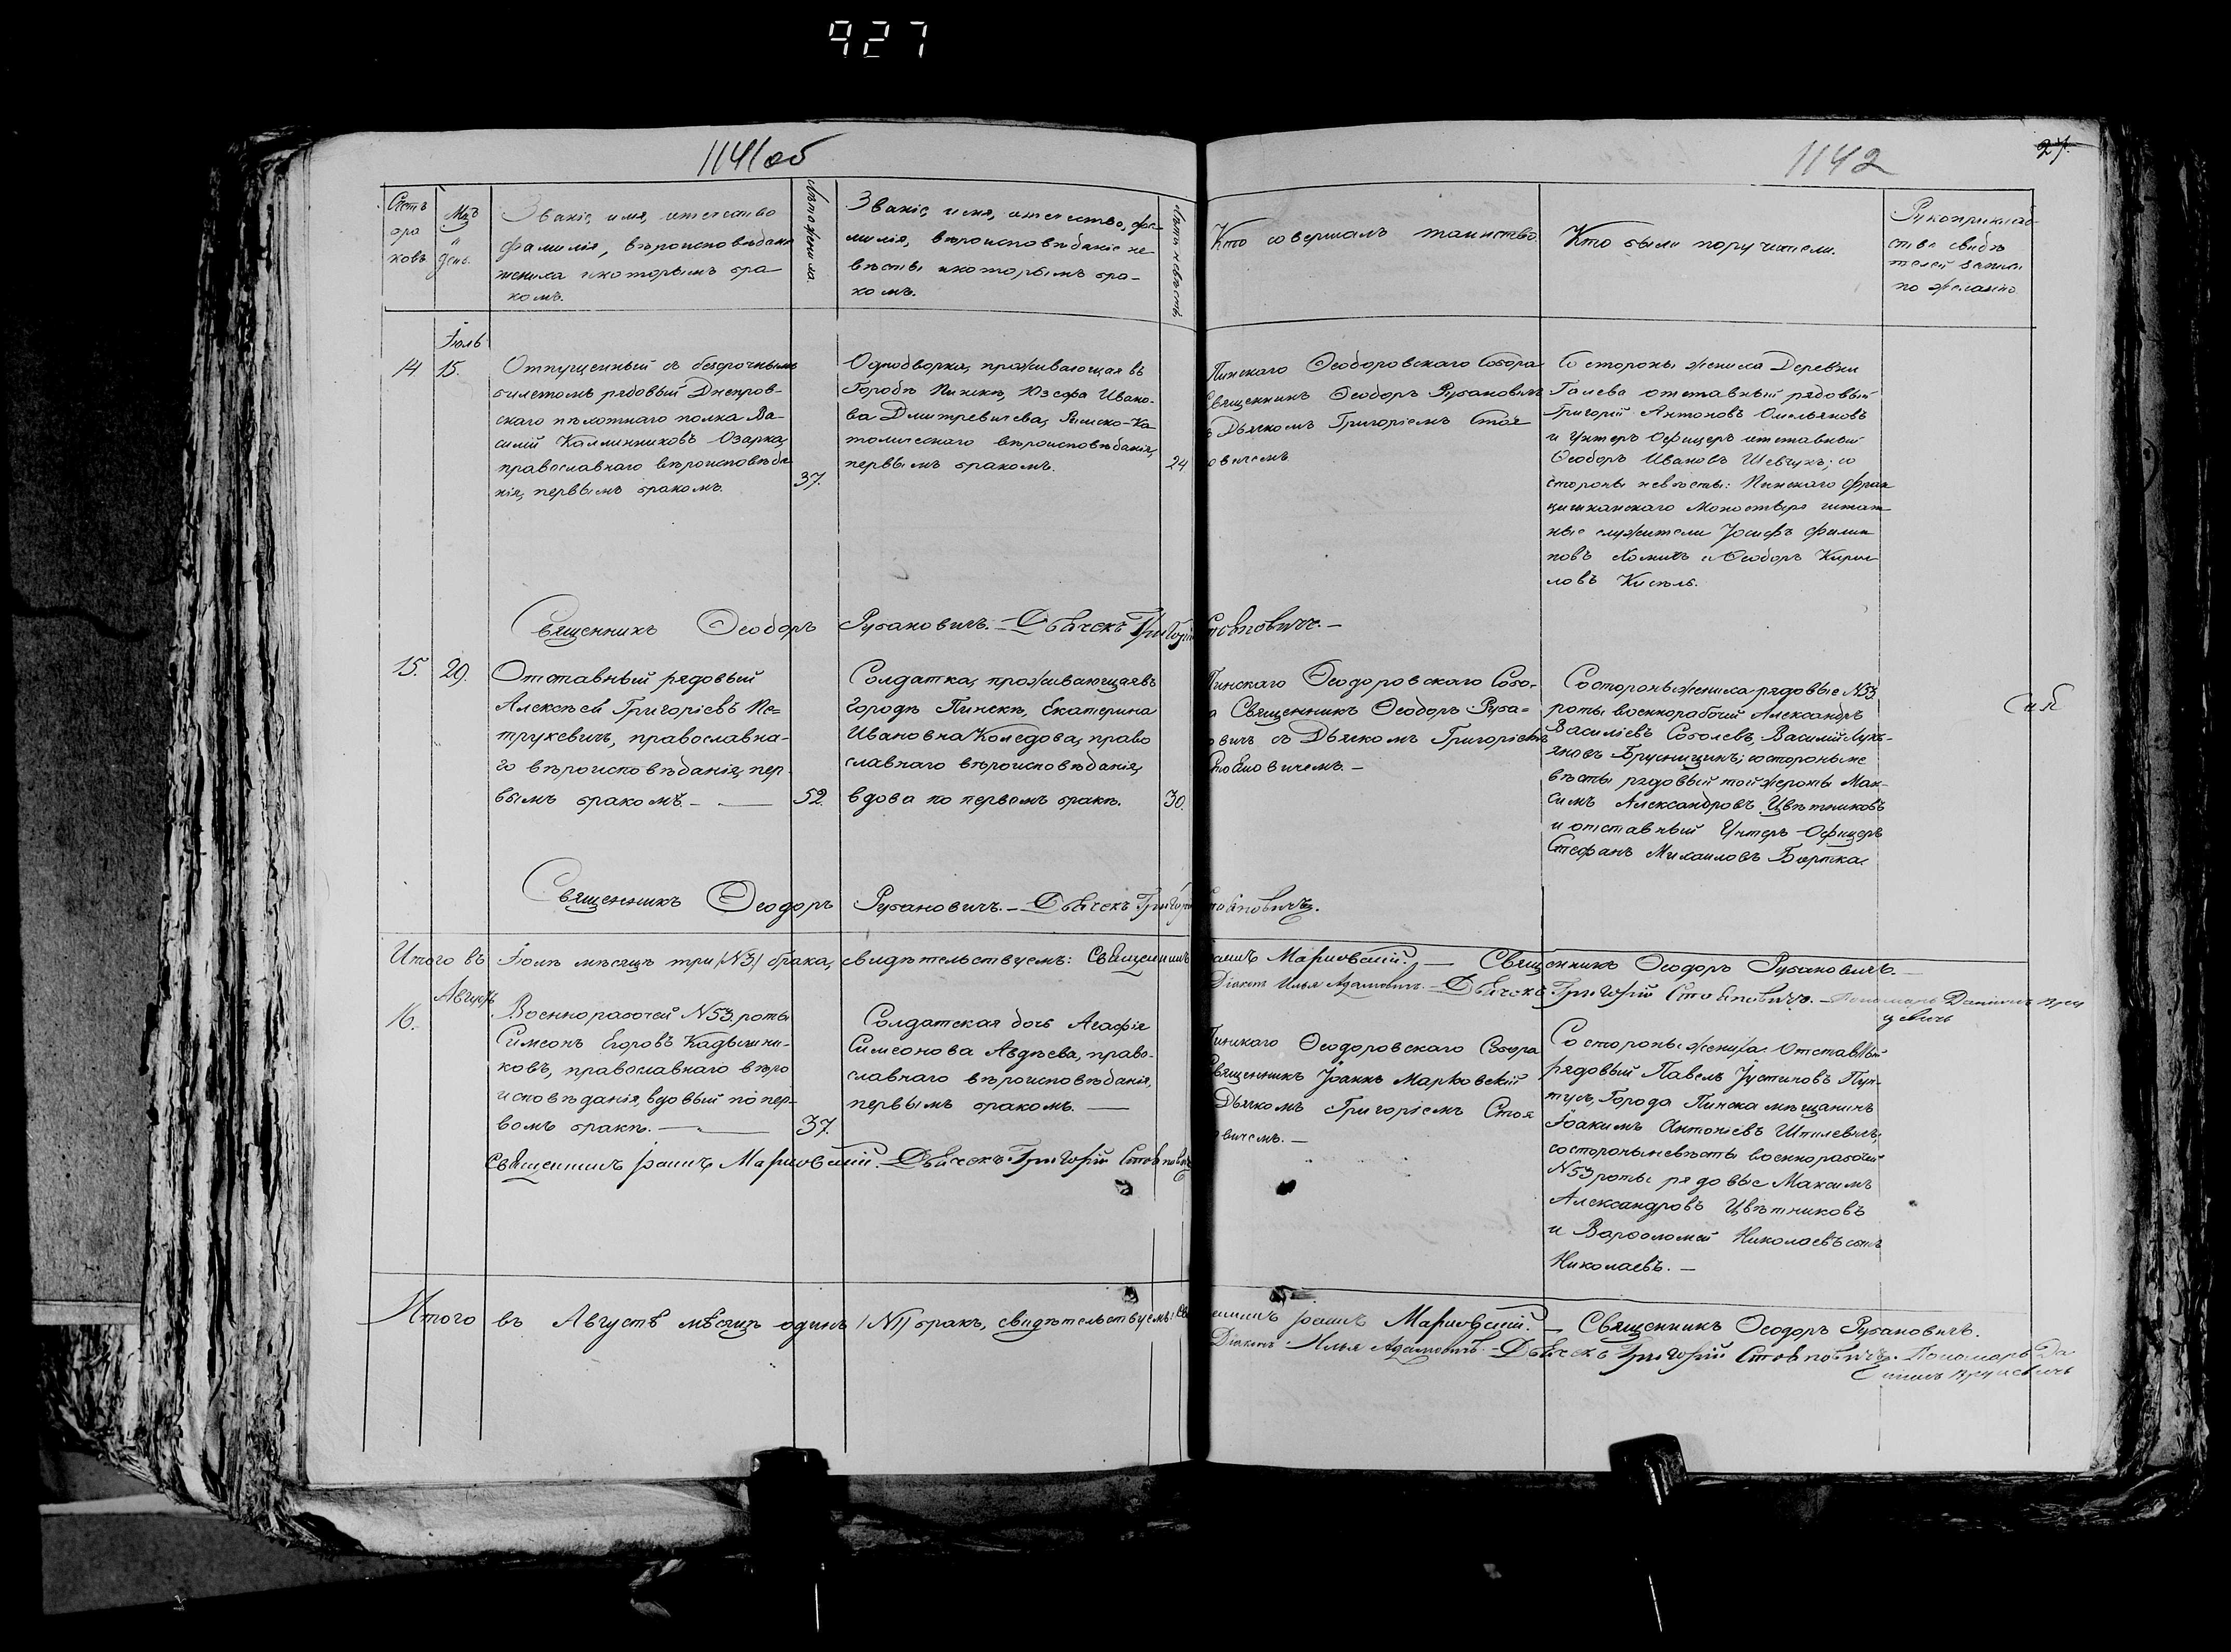 927
1141об
1142
27.
Счетъ
бра
ковъ
Мцъ
и
день.
Званіе, имя, отечество
фамилія, вѣроисповѣдані
жениха и которымъ бра
комъ.
Лѣта жениха.
Званіе, имя, отечество, фа-
милія, вѣроисповѣданіе не
вѣсты и которымъ бра-
комъ.
Лѣта невѣсты
Кто совершалъ таинство.
Кто были поручители.
Рукоприклад-
ство свидѣ
телей записи
по желанію
Іюль
14
15.
Отпущенный съ безсрочнымъ
билетомъ рядовый Днепров-
скаго пѣхотнаго полка Ва-
силій Калинниковъ Озарка,
православнаго вѣроисповѣда
нія, первымъ бракомъ.
37.
Однодворка, проживающая въ
Городѣ Пинскѣ, Юзефа Ивано-
ва Дмитревичева, Римско-Ка
толическаго вѣроисповѣданія,
первымъ бракомъ.
24
Пинскаго Ѳеодоровскаго Собора
Священникъ Ѳеодоръ Рубановичъ
ъ Дьячкомъ Григоріемъ Стоя
овичемъ
Со стороны жениха Деревни
Галева отставный рядовый
Григорій Антоновъ Омельяновъ
и Унтеръ Офицеръ отставный
Ѳеодоръ Ивановъ Шевчукъ; со
стороны невѣсты: Пинскаго Фран
цишканскаго Монастыря штат
ные служители Іосифъ Филип
повъ Ломичъ и Ѳеодоръ Кирил
ловъ Кисѣль.
Священникъ Ѳеодоръ Рубановичъ. – Дьячекъ Григорій Стояновичъ. –
15.
29.
Отставный рядовый
Алексѣй Григоріевъ Пе=
трукевичъ, православна-
го вѣроисповѣданія, пер-
вымъ бракомъ. – —
52.
Солдатка, проживающая въ
Городѣ Пинскѣ, Екатерина
Ивановна Коледова, право
славнаго вѣроисповѣданія,
вдова по первомъ бракѣ.
30.
Пинскаго Ѳеодоровскаго Собо-
а Священникъ Ѳеодоръ Руба=
овичъ съ Дьячкомъ Григоріемъ
Стояновичемъ. –
Со стороны жениха рядовые N53
роты военнорабочей Александръ
Василіевъ Соболевъ, Василій Лукъ-
яновъ Брусницинъ; со стороны не
вѣсты рядовый той же роты Мак-
симъ Александровъ Цвѣтниковъ
и отставный Унтеръ-Офицеръ
Стефанъ Михаиловъ Бортка.
Священникъ Ѳеодоръ Рубановичъ. – Дьячекъ Григорій Стояновичъ.
Итого въ Іюлѣ мѣсяцѣ три /N3/ брака, свидѣтельствуемъ: Священникъ Іоаннъ Марковскій. — Священникъ Ѳеодоръ Рубановичъ. –
Діаконъ Илья Адамовичъ. – Дьячекъ Григорій Стояновичъ. – Пономарь Даніилъ
цевичъ
Августъ
16.
Военнорабочей N53 роты
Симеонъ Егоровъ Кадыши-
ковъ, православнаго вѣро
исповѣданія, вдовый по пер-
вомъ бракѣ. — —
37.
Солдатская дочь Агафія
Симеонова Авдѣева, право-
славнаго вѣроисповѣданія,
первымъ бракомъ. —
Пинскаго Ѳеодоровскаго Собора
Священникъ Іоаннъ Марковскій
Дьячкомъ Григоріемъ Стоя
овичемъ. –
Со стороны жениха: Отставный
рядовый Павелъ Іустиновъ Пун-
тусъ, Города Пинска мѣщанинъ
Іоакимъ Антоніевъ Шпилевичъ;
со стороны невѣсты военнорабочей
N53 роты рядовые Максимъ
Александровъ Цвѣтниковъ
и Варѳоломей Николаевъ сынъ
Николаевъ. –
Священникъ Іоаннъ Марковскій. Дьячекъ Григорій Стояновичъ
Итого въ Августѣ мѣсяцѣ одинъ /N1/ бракъ, свидѣтельствуемъ: Священникъ Іоаннъ Марковскій. — Священникъ Ѳеодоръ Рубановичъ.
Діаконъ Илья Адамовичъ. – Дьячекъ Григорій Стояновичъ. Пономарь Да
ніилъ